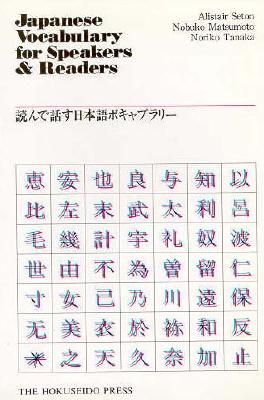 Japanese
Vocabulary
for Speakers
& Readers
Alistair Seton
Nobuko Matsumoto
Noriko Tanaka
読んで話す日本語ボキャブラリー
恵安也良与知以
比左末武太利呂
毛幾計宇礼奴波
世由不為曽留仁
寸女己乃川遠保
无美衣於祢和反
之天久奈加止
THE HOKUSEIDO PRESS